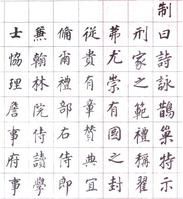 制曰詩詠鵲巢特示
刑家之範禮稱翟
茀尤崇有國之封
從貴有章贊典宜
備爾禮部右侍郎
兼翰林院侍讀學
士協理詹事府事